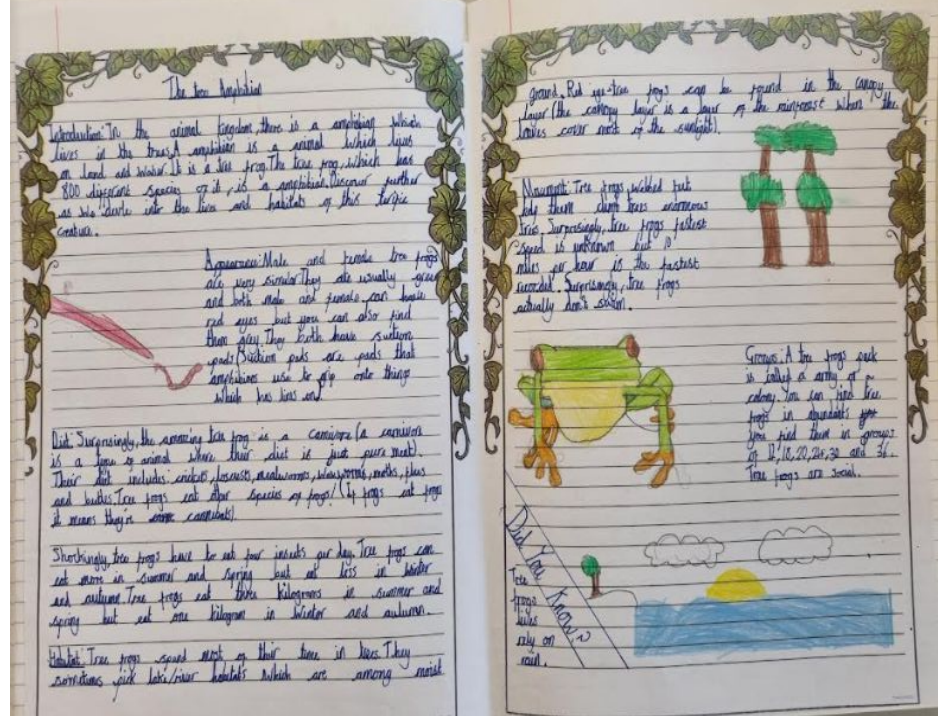 The tree Amphibian
Introduction: In the animal kingdom, there is a amphibian which
lives in the trees. A amphibian is a animal which lives
on land and water. It is a tree frog. The tree frog, which has
800 different species of it, is a amphibian. Discover further
as we delve into the lives and habitats of this terific
creature.
Appearance: Male and female tree frogs
are very similar. They are usually green
and both male and female can have
red eyes but you can also find
them grey. They both have suction
pads. (Suction pads are pads that
amphibians use to grip onto things
which has lives on).
Diet: Surprisingly, the amazing tree frog is a carnivore (a carnivore
is a type of animal where their diet is just pure meat).
Their diet includes: crickets, locusts, mealworms, waxworms, moths, flies
and beetles. Tree frogs eat other species of frogs! (If frogs eat frogs
it means they're cannibals).
Shockingly, tree frogs have to eat four insects per day. Tree frogs can
eat more in summer and spring but eat less in winter
and autumn. Tree frogs eat three kilograms in summer and
spring but eat one kilogram in winter and autumn.
Habitat: Tree frogs spend most of their time in trees. They
sometimes pick lake/river habitats which are among moist
ground. Red eye-tree frogs can be found in the canopy
layer (the canopy layer is a layer of the rainforest when the
leaves cover most of the sunlight).
Movement: Tree frogs, webbed feet
help them climb trees enormous
trees. Surprisingly, tree frogs fastest
speed is unknown but 10
miles per hour is the fastest
recorded. Surprisingly, tree frogs
actually don't swim.
Groups: A tree frogs pack
is called a army or a
colony. You can find tree
frogs in abundants
you find them in groups
of 12, 18, 20, 24, 30 and 36.
Tree frogs are social.
Did You Know?
Tree
frogs
lives
rely on
rain.